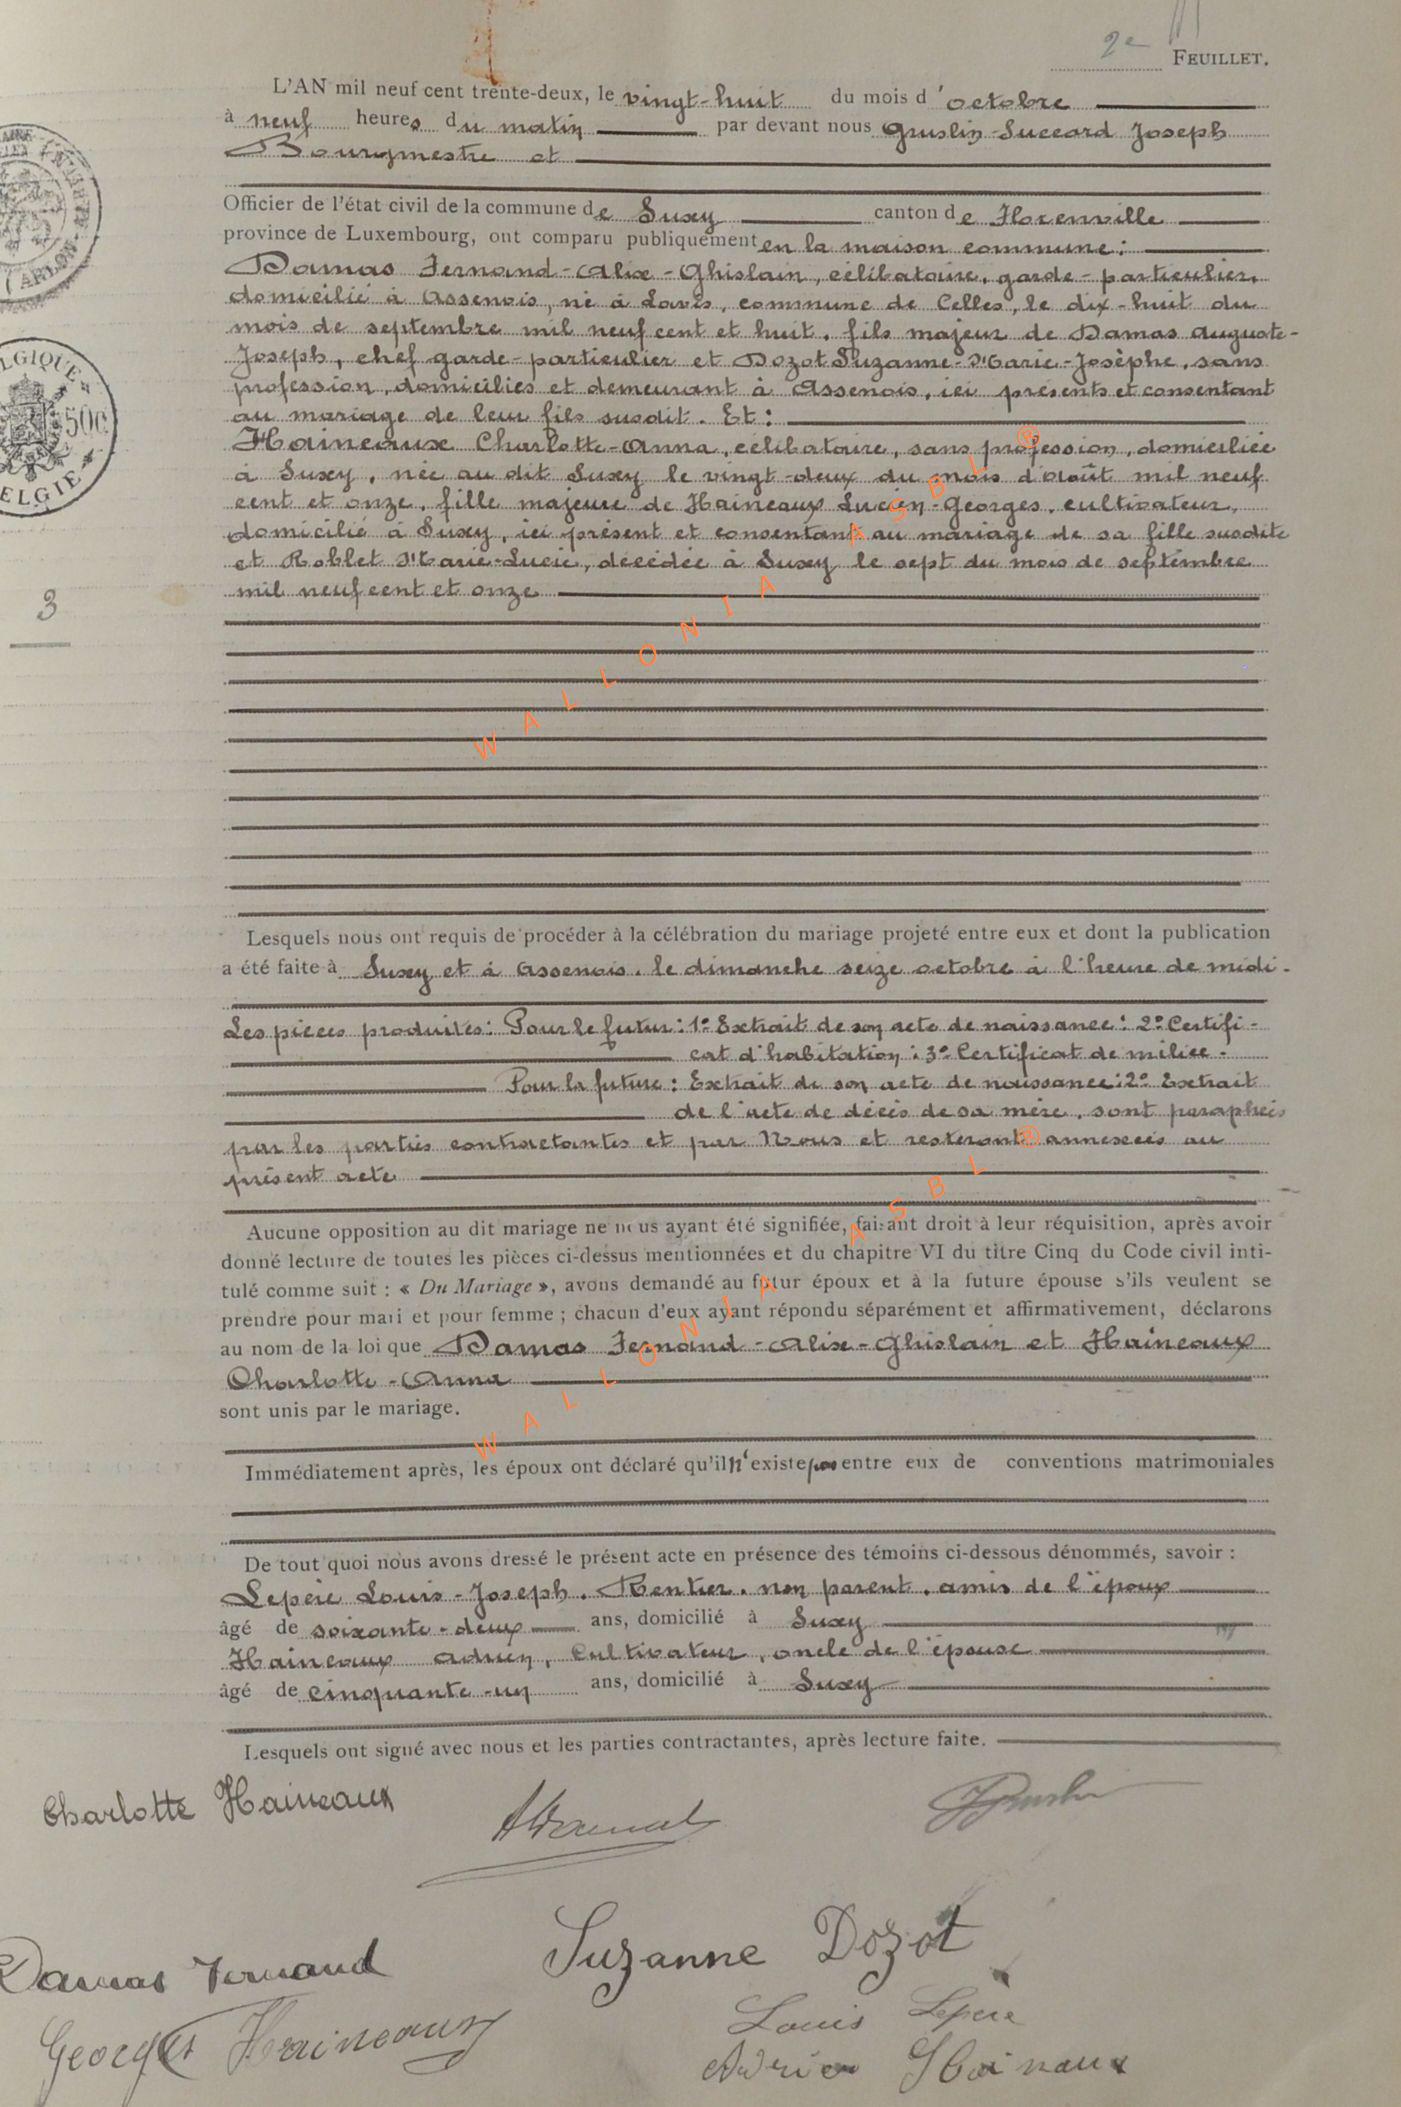 2e FEUILLET.
L'AN mil neuf cent trente-deux, le vingt-huit du mois d'octobre
à neuf heures du matin par devant nous Gruslin-Succard Joseph
Bourgmestre et
Officier de l'état civil de la commune de Suxy canton de Florenville
province de Luxembourg, ont comparu publiquement en la maison commune :
Damas Fernand-Alix-Ghislain, célibataire, garde-particulier,
domicilié à Assenois, né à Lavis, commune de Celles, le dix-huit du
mois de septembre mil neuf cent et huit, fils majeur de Damas Auguste-
Joseph, chef garde-particulier et Dozot Suzanne-Marie-Josèphe, sans
profession, domiciliés et demeurant à Assenois, ici présents et consentant
au mariage de leur fils susdit. Et :
Haineaux Charlotte-Anna, célibataire, sans profession, domiciliée
à Suxy, née au dit Suxy le vingt-deux du mois d'août mil neuf
cent et onze, fille majeure de Haineaux Lucien-Georges, cultivateur,
domicilié à Suxy, ici présent et consentant au mariage de sa fille susdite
et Roblet Marie-Lucie, décédée à Suxy le sept du mois de septembre
mil neuf cent et onze
3
Lesquels nous ont requis de procéder à la célébration du mariage projeté entre eux et dont la publication
a été faite à Suxy et à Assenois, le dimanche seize octobre à l'heure de midi.
Les pièces produites : Pour le futur : 1° Extrait de son acte de naissance : 2° Certifi-
cat d'habitation : 3° Certificat de milice.
Pour la future : Extrait de son acte de naissance : 2° Extrait
de l'acte de décès de sa mère, sont paraphés
par les parties contractantes et par Nous et resteront annexées au
présent acte
Aucune opposition au dit mariage ne nous ayant été signifiée, faisant droit à leur réquisition, après avoir
donné lecture de toutes les pièces ci-dessus mentionnées et du chapitre VI du titre Cinq du Code civil inti-
tulé comme suit : « Du Mariage », avons demandé au futur époux et à la future épouse s'ils veulent se
prendre pour mari et pour femme ; chacun d'eux ayant répondu séparément et affirmativement, déclarons
au nom de la loi que Damas Fernand-Alix-Ghislain et Haineaux
Charlotte-Anna
sont unis par le mariage.
Immédiatement après, les époux ont déclaré qu'il n'existe pas entre eux de conventions matrimoniales
De tout quoi nous avons dressé le présent acte en présence des témoins ci-dessous dénommés, savoir :
Lepère Louis-Joseph, Rentier, non parent, amis de l'époux
âgé de soixante-deux ans, domicilié à Suxy
Haineaux Adrien, Cultivateur, oncle de l'épouse
âgé de cinquante-un ans, domicilié à Suxy
Lesquels ont signé avec nous et les parties contractantes, après lecture faite.
Charlotte Haineaux
Damas Fernand
Suzanne Dozot
Georges Haineaux
Louis Lepère
Adrien Hainaux
BELGIQUE
50c
BELGIE
ARLON
WALLONIA ASBL ®
WALLONIA ASBL ®